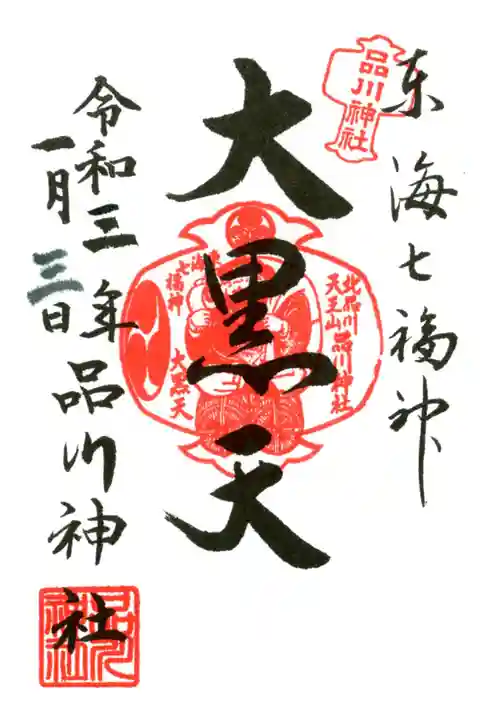 東海七福神
品川神社
大黒天
北品川
天王山
品川神社
東海
七福神
大黒天
令和三年品川神社
一月三日